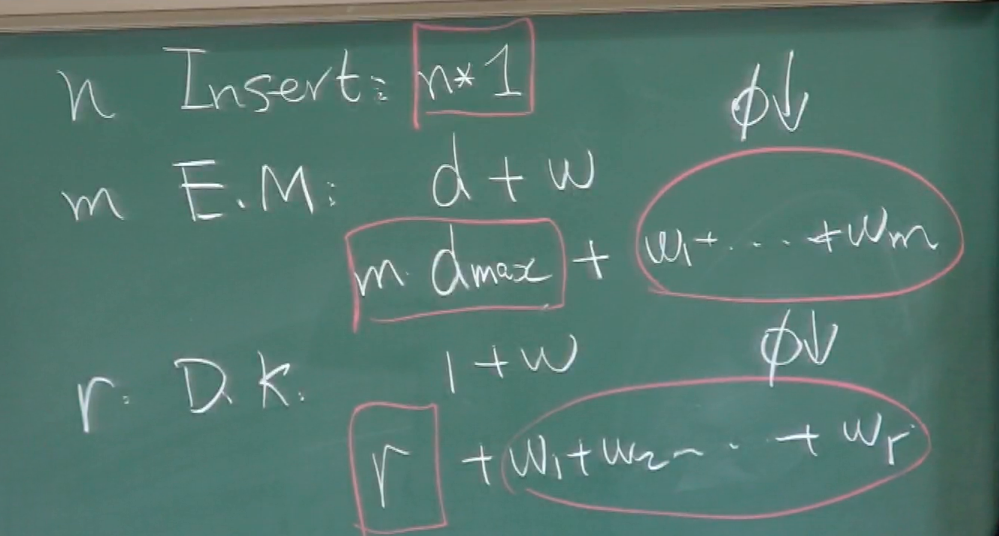 n Insert: n*1
ϕ↓
m E.M: d + w
m. dmax + w1+....+wm
ϕ↓
r. D.K. 1+w
r + w1+w2~...+ wr